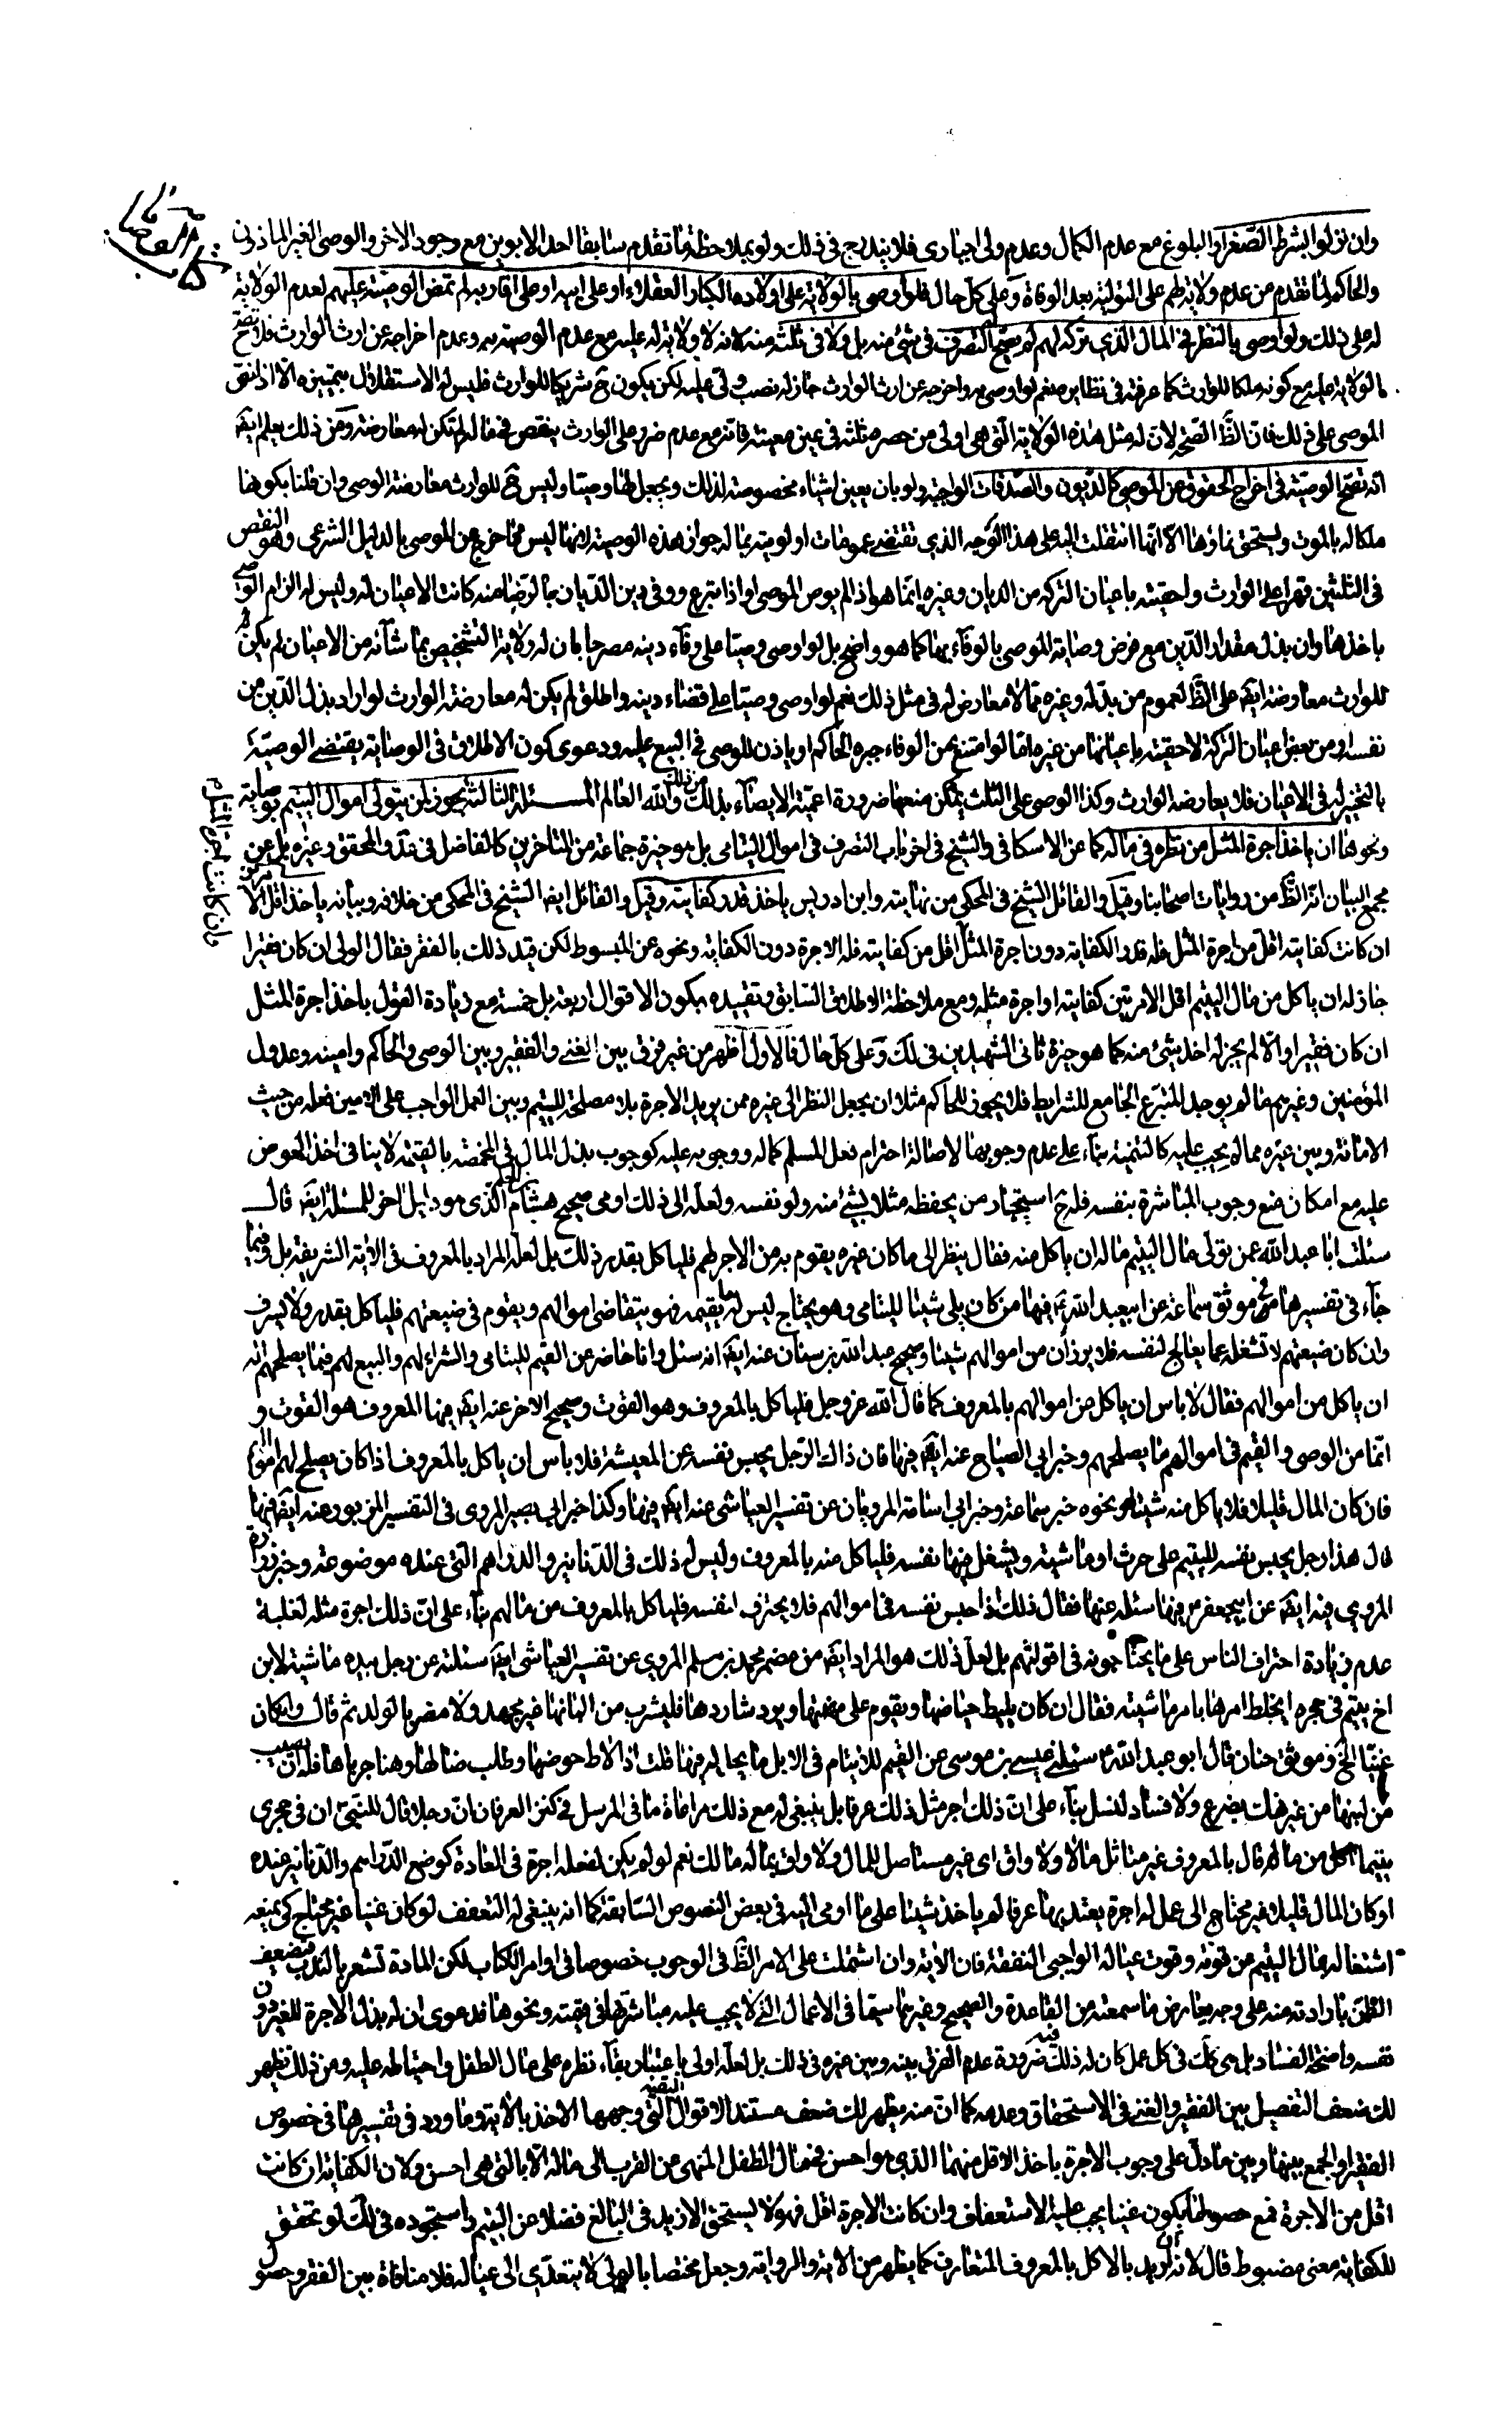 وان نزلوا بشرط الصغر او البلوغ مع عدم الكمال وعدم ولى اجبارى فلا يندرج فى ذلك ولو بملاحظة ما تقدم سابقا احد الابوين مع وجود الاخر والوصى الغير الماذون
والحاكم لما تقدم من عدم ولاية لهم على التولية بعد الوفاة وعلى كل حال فلو اوصى بالولاية على اولاده الكبار العقلاء او على ابيه او على اقاربه لم تمض الوصية عليهم لعدم الولاية
له على ذلك ولو اوصى بالنظر فى المال الذى تركه لهم لم يصح التصرف فى شئ منه بل ولا فى ثلثه منه لانه لا ولاية له عليه مع عدم الوصية به وعدم اخراجه عن ارث الوارث فلا تصح
الولاية عليه مع كونه ملكا للوارث كما عرفته فى نظايره نعم لو اوصى به واخرجه عن ارث الوارث جاز له نصب ولى عليه لكن يكون ح شريكا للوارث فليس له الاستقلال بتمييزه الا اذا نص
الموصى على ذلك فان الظ الصحة لان له مثل هذه الولاية التى هى اولى من حصره ثلثه فى عين معينة فانه مع عدم ضرر على الوارث بنقص فى ماله لم تكن له معارضة ومن ذلك يعلم ايضا
انه تصح الوصية فى اخراج الحقوق عن الموصى كالديون والصدقات الواجبة ولو بان يعين اشياء مخصوصة لذلك ويجعل لها وصيا وليس ح للوارث معارضة الوصى وان قلنا بكونها
ملكا له بالموت ويستحق نماؤها الا انها انتقلت اليه على هذا الوجه الذى تقتضى عمومات اولويته بماله جواز هذه الوصية لانها ليس مما خرج عن الموصى بالدليل الشرعى وهو النقص
فى الثلثين قهرا على الوارث واحقيته باعيان التركة من الديان وغيره انما هو اذا لم يوص الموصى او اذا تبرع ووفى دين الديان بما لرضا منه كانت الاعيان له وليس له الزام الوصى
باخذها وان بذل مقدار الدين مع فرض وصاية للوصى بالوفاء بها كما هو واضح بل لو اوصى وصيا على وفاء دينه مصرحا بان له ولاية التشخيص بما شاءه من الاعيان لم يكن
للوارث معارضة ايضا على الظ لعموم من بدله وغيره مما لا معارض له فى مثل ذلك نعم لو اوصى وصيا على قضاء دينه واطلق لم يكن له معارضة الوارث لو اراد بذل الدين من
نفسه او من بعض اعيان التركة لاحقيته باعيانها من غيره اما لو امتنع من الوفاء جبره الحاكم او ياذن للوصى فى البيع عليه ودعوى كون الاطلاق فى الوصاية يقتضى الوصية
بالتخيير له فى الاعيان فلا يعارضه الوارث وكذا الوصى على الثلث يمكن منعها ضرورة اعمية الايصاء بذلك من ذلك والله العالم المسئلة الثالثة يجوز لمن يتولى اموال اليتيم بوصاية
ونحوها ان ياخذ اجرة المثل من نظره فى ماله كما عن الاسكافى والشيخ فى اخر باب التصرف فى اموال اليتامى بل هو خيرة جماعة من المتاخرين كالفاضل فى عد والمحقق وغيره بل عن
مجمع البيان انه الظ من روايات اصحابنا وقيل والقائل الشيخ فى المحكى من نهايته وابن ادريس ياخذ قدر كفايته وقيل والقائل ايضا الشيخ فى المحكى من خلافه وبيانه ياخذ اقل الامرين
فان كانت اجرة المثل
ان كانت كفايته اقل من اجرة المثل فله قدر الكفاية دون اجرة المثل اقل من كفايته فله الاجرة دون الكفاية ونحوه عن المبسوط لكن قيد ذلك بالفقر فقال الولى ان كان فقيرا
جاز له ان ياكل من مال اليتيم اقل الامرين كفايته او اجرة مثله ومع ملاحظة الاطلاق السابق وتقييده يكون الاقوال اربعة بل خمسة مع زيادة القول باخذ اجرة المثل
ان كان فقيرا والا لم يجز له اخذ شئ منه كما هو خيرة ثانى الشهيدين فى لك وعلى كل حال فالاول اظهر من غير فرق بين الغنى والفقير وبين الوصى والحاكم وامينه وعدول
المؤمنين وغيرهم ما لم يوجد المتبرع الجامع للشرايط فلا يجوز للحاكم مثلا ان يجعل النظر الى غيره ممن يريد الاجرة بلا مصلحة لليتيم وبين العمل الواجب على الامين فعله من حيث
الامانة وبين غيره مما لم يجب عليه كالتنمية بناء على عدم وجوبها لاصالة احترام فعل المسلم كماله ووجوبه عليه كوجوب بذل المال فى المخمصة بالقيمة لا ينافى اخذ العوض
عليه مع امكان منع وجوب المباشرة بنفسه فله ح استيجار من يحفظه مثلا بشئ منه ولو نفسه ولعله الى ذلك اومى صحيح هشام بن الحكم الذى هو دليل اخر للمسئلة ايضا قال
سئلت ابا عبد الله عمن تولى مال اليتيم ماله ان ياكل منه فقال ينظر الى ما كان غيره يقوم به من الاجر لهم فلياكل بقدر ذلك بل لعله المراد بالمعروف فى الاية الشريفة بل وفيما
جاء فى تفسيرها ففى موثق سماعة عن ابيعبد الله فيها من كان يلى شيئا لليتامى وهو محتاج ليس له ما يقيمه فهو يتقاضى اموالهم ويقوم فى ضيعتهم فلياكل بقدر ولا يسرف
وان كان ضيعتهم لا تشغله عما يعالج لنفسه فلا يرزأن من اموالهم شيئا وصحيح عبد الله بن سنان عنه ايضا انه سئل وانا حاضر عن القيم لليتامى والشراء لهم والبيع لهم فيما يصلحهم اله
ان ياكل من اموالهم فقال لا باس ان ياكل من اموالهم بالمعروف كما قال الله عز وجل فلياكل بالمعروف وهو القوت وصحيح الاخر عنه ايضا فيها المعروف هو القوت و
انما من الوصى والقيم فى اموالهم ما يصلحهم وخبر ابى الصباح عنه ايضا فيها فان ذاك الرجل يحبس نفسه عن المعيشة فلا باس ان ياكل بالمعروف اذا كان يصلح لهم اموالهم
فان كان المال قليلا فلا ياكل منه شيئا ونحوه خبر سماعة وخبر ابى اسامة المرويان عن تفسير العياشى عنه ايضا فيها وكذا خبر ابى بصير المروى فى التفسير المزبور عنه ايضا فيها
قال هذا رجل يحبس نفسه لليتيم على حرث او ماشية ويشغل فيها نفسه فلياكل منه بالمعروف وليس له ذلك فى الدنانير والدراهم التى عنده موضوعة وخبر زرارة
المروى فيه ايضا عن ابيجعفر فيها سئله عنها فقال ذلك اذا حبس نفسه فى اموالهم فلا يحترف لنفسه فلياكل بالمعروف من مالهم بناء على ان ذلك اجرة مثله لغلبة
عدم زيادة احتراف الناس على ما يحتاجونه فى اقواتهم بل لعل ذلك هو المراد ايضا من مضمر محمد بن مسلم المروى عن تفسير العياشى ايضا سئلته عن رجل بيده ماشية لابن
اخ يتيم فى حجره ايخلط امرها بامر ماشيته فقال ان كان يليط حياضها ويقوم على مهنتها ويرد شاردها فليشرب من البانها غير مجهد ولا مضر بالولد ثم قال وان كان
غنيا الخ وموثق حنان قال ابو عبد الله سئلنى عيسى بن موسى عن القيم للايتام فى الابل ما يحل له فيها قلت اذا لاط حوضها وطلب ضالتها وهنا جرباها فله ان يصيب
من لبنها من غير نهك بضرع ولا فساد لنسل بناء على ان ذلك اجر مثل ذلك عرفا بل ينبغى له مع ذلك مراعاة ما فى المرسل فى كنز العرفان ان رجلا قال للنبى ان فى حجرى
يتيما آكل من ماله قال بالمعروف غير متاثل مالا ولا واق اى غير مستاصل للمال ولا واق بماله مالك نعم لو لم يكن لفعله اجرة فى العادة كوضع الدراهم والدنانير عنده
او كان المال قليلا غير محتاج الى عمل له اجرة يعتد بها عرفا لم ياخذ شيئا على ما اومى اليه فى بعض النصوص السابقة كما انه ينبغى له التعفف لو كان غنيا غير محتاج كى يمنعه
اشتغاله بمال اليتيم من قوته وقوت عياله الواجبى النفقة فان الاية وان اشتملت على الامر الظ فى الوجوب خصوصا فى اوامر الكتاب لكن المادة تشعر بالندب فيضعف
الظن بارادته منه على وجه يعارض ما سمعته من القاعدة والصحيح وغيرها سيما فى الاعمال التى لا يجب عليه مباشرتها فى قيمته ونحوها فدعوى ان له بذل الاجرة للغير دون
نفسه واضحة الفساد بل هى كك فى كل عمل كان له ذلك فيه ضرورة عدم الفرق بينه وبين غيره فى ذلك بل لعله اولى باعتبار بقاء نظره على مال الطفل واحتياطه عليه ومن ذلك يظهر
لك ضعف التفصيل بين الفقير والغنى فى الاستحقاق وعدمه كما ان منه يظهر لك ضعف مستند الاقوال البقية التى وجهها الاخذ بالاية وما ورد فى تفسيرها فى خصوص
الفقير او الجمع بينها وبين ما دل على وجوب الاجرة باخذ الاقل منهما الذى هو احسن فى مال الطفل المنهى عن القرب الى ماله الا بالتى هى احسن ولان الكفاية ان كانت
اقل من الاجرة فمع حصولها يكون غنيا يجب عليه الاستعفاف وان كانت الاجرة اقل فهو لا يستحق الازيد فى البالغ فضلا عن اليتيم واستجوده فى لك لو تحقق
للكفاية معنى مضبوط قال لانه ان اريد بالاكل بالمعروف المتعارف كما يظهر من الاية والرواية وجعل مختصا بالولى لا يتعدى الى عياله فلا منافاة بين الفقر وحصول